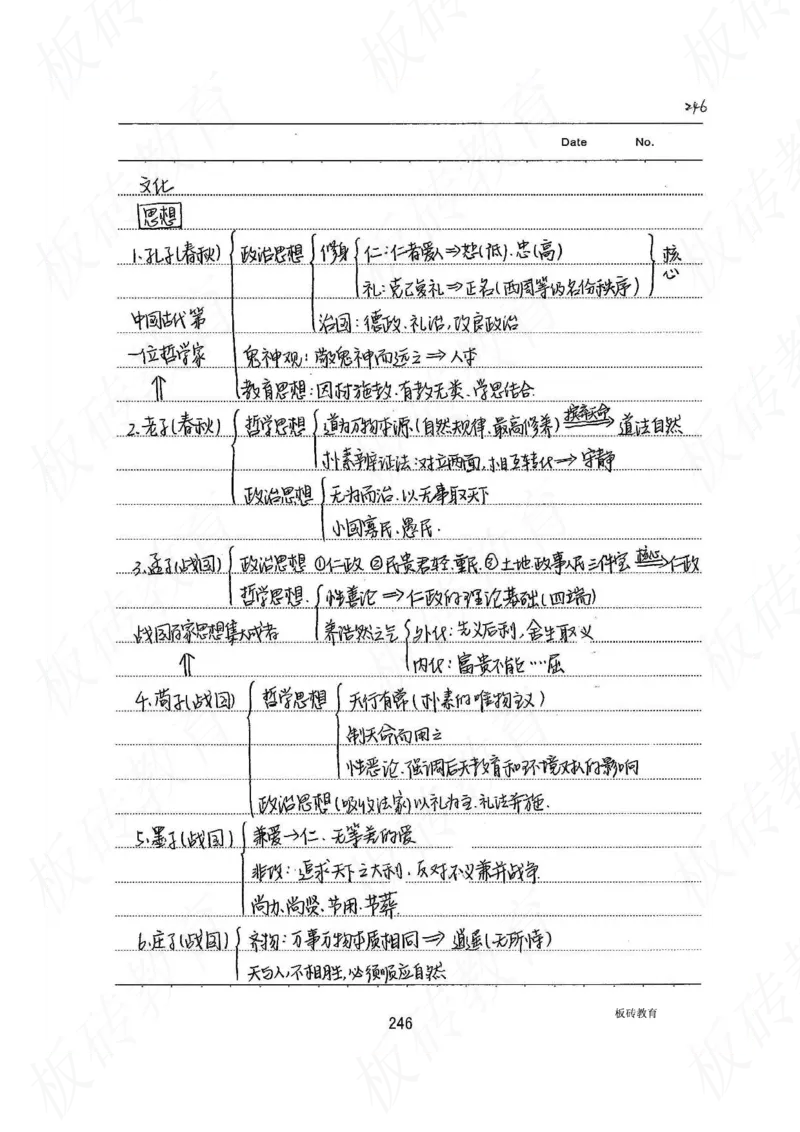 246
Date No.
文化
思想
1.孔子(春秋) 政治思想 修身 仁:仁者爱人⇒恕(低).忠(高) 核心
礼:克己复礼⇒正名(西周等级名份秩序)
中国古代第 治国:德政.礼治,改良政治
一位哲学家 鬼神观:敬鬼神而远之⇒人本
⇑ 教育思想:因材施教.有教无类.学思结合.
2.老子(春秋) 哲学思想 道为万物本源.(自然规律.最高修养) ⇒ 道法自然
朴素辨证法:对立两面,相互转化⇒守静
政治思想 无为而治.以无事取天下
小国寡民.愚民.
3.孟子(战国) 政治思想 ①仁政 ②民贵君轻.重民.③土地.政事.人民三件宝 核心⇒仁政
哲学思想. 性善论⇒仁政的理论基础(四端)
战国百家思想集大成者 养浩然之气 外化:先义后利,舍生取义
⇑ 内化:富贵不能…屈
4.荀子(战国) 哲学思想 天行有常(朴素的唯物主义)
制天命而用之
性恶论.强调后天教育和环境对人的影响
政治思想(吸收法家)以礼为主.礼法并施.
5.墨子(战国) 兼爱→仁.无等差的爱
非攻:追求天下之大利,反对不义兼并战争
尚力.尚贤.节用.节葬.
6.庄子(战国) 齐物:万事万物本质相同⇒逍遥(无所恃)
天与人,不相胜,必须顺应自然.
246
板砖教育